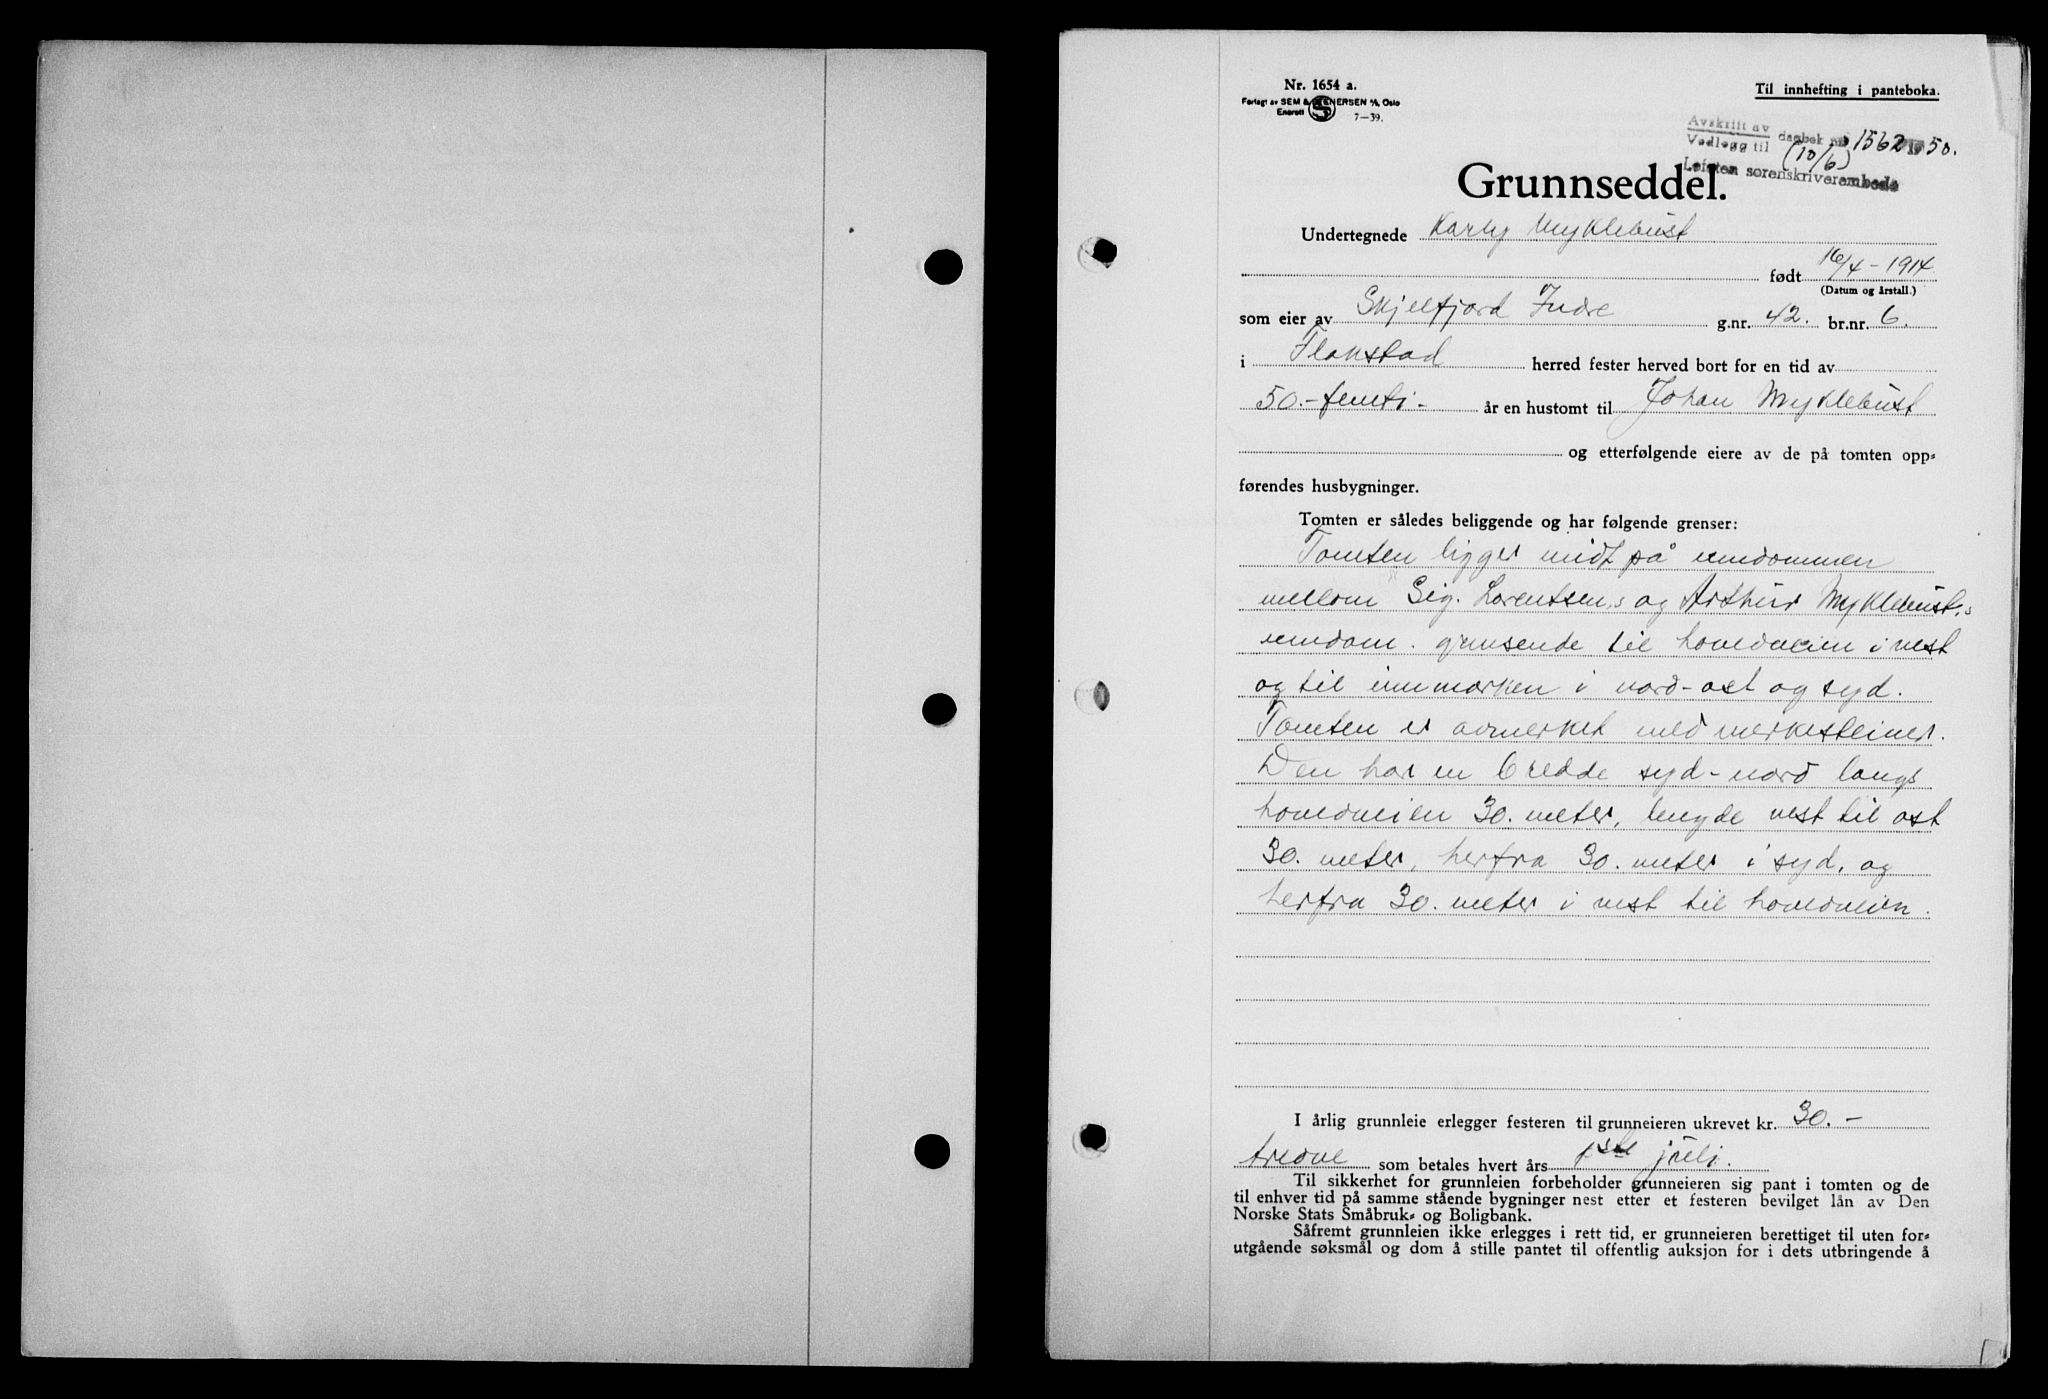 Nr. 1654 a.
Forlagt av SEM & STENERSEN A/S, Oslo
Enerett
7—39.
Til innhefting i panteboka.
Avskrift av
Vedlegg til dagbok nr 1562 1950.
(10/6)
Lofoten sorenskriverembede
Grunnseddel.
Undertegnede Karly Myklebust
født 16/4 - 1914
(Datum og årstall.)
som eier av Skjelfjord Indre g.nr. 42. br.nr. 6.
i Flakstad herred fester herved bort for en tid av
50.- femti - år en hustomt til Johan Myklebust
og etterfølgende eiere av de på tomten opp-
førendes husbygninger.
Tomten er således beliggende og har følgende grenser:
Tomten ligger midt på eiendommen
mellom Sig. Lorentsen,s og Arthur Myklebust,s
eiendom. grensende til hovedveien i vest
og til innmarken i nord-ost og syd.
Tomten er avmerket med merkesteiner.
Den har en bredde syd-nord langs
hovedveien 30. meter, lengde vest til ost
30. meter, herfra 30. meter i syd, og
herfra 30. meter i vest til hovedveien.
I årlig grunnleie erlegger festeren til grunneieren ukrevet kr. 30.-
tredve som betales hvert års 1ste juli.
Til sikkerhet for grunnleien forbeholder grunneieren sig pant i tomten og de
til enhver tid på samme stående bygninger nest etter et festeren bevilget lån av Den
Norske Stats Småbruk- og Boligbank.
Såfremt grunnleien ikke erlegges i rett tid, er grunneieren berettiget til uten for-
utgående søksmål og dom å stille pantet til offentlig auksjon for i dets utbringende å